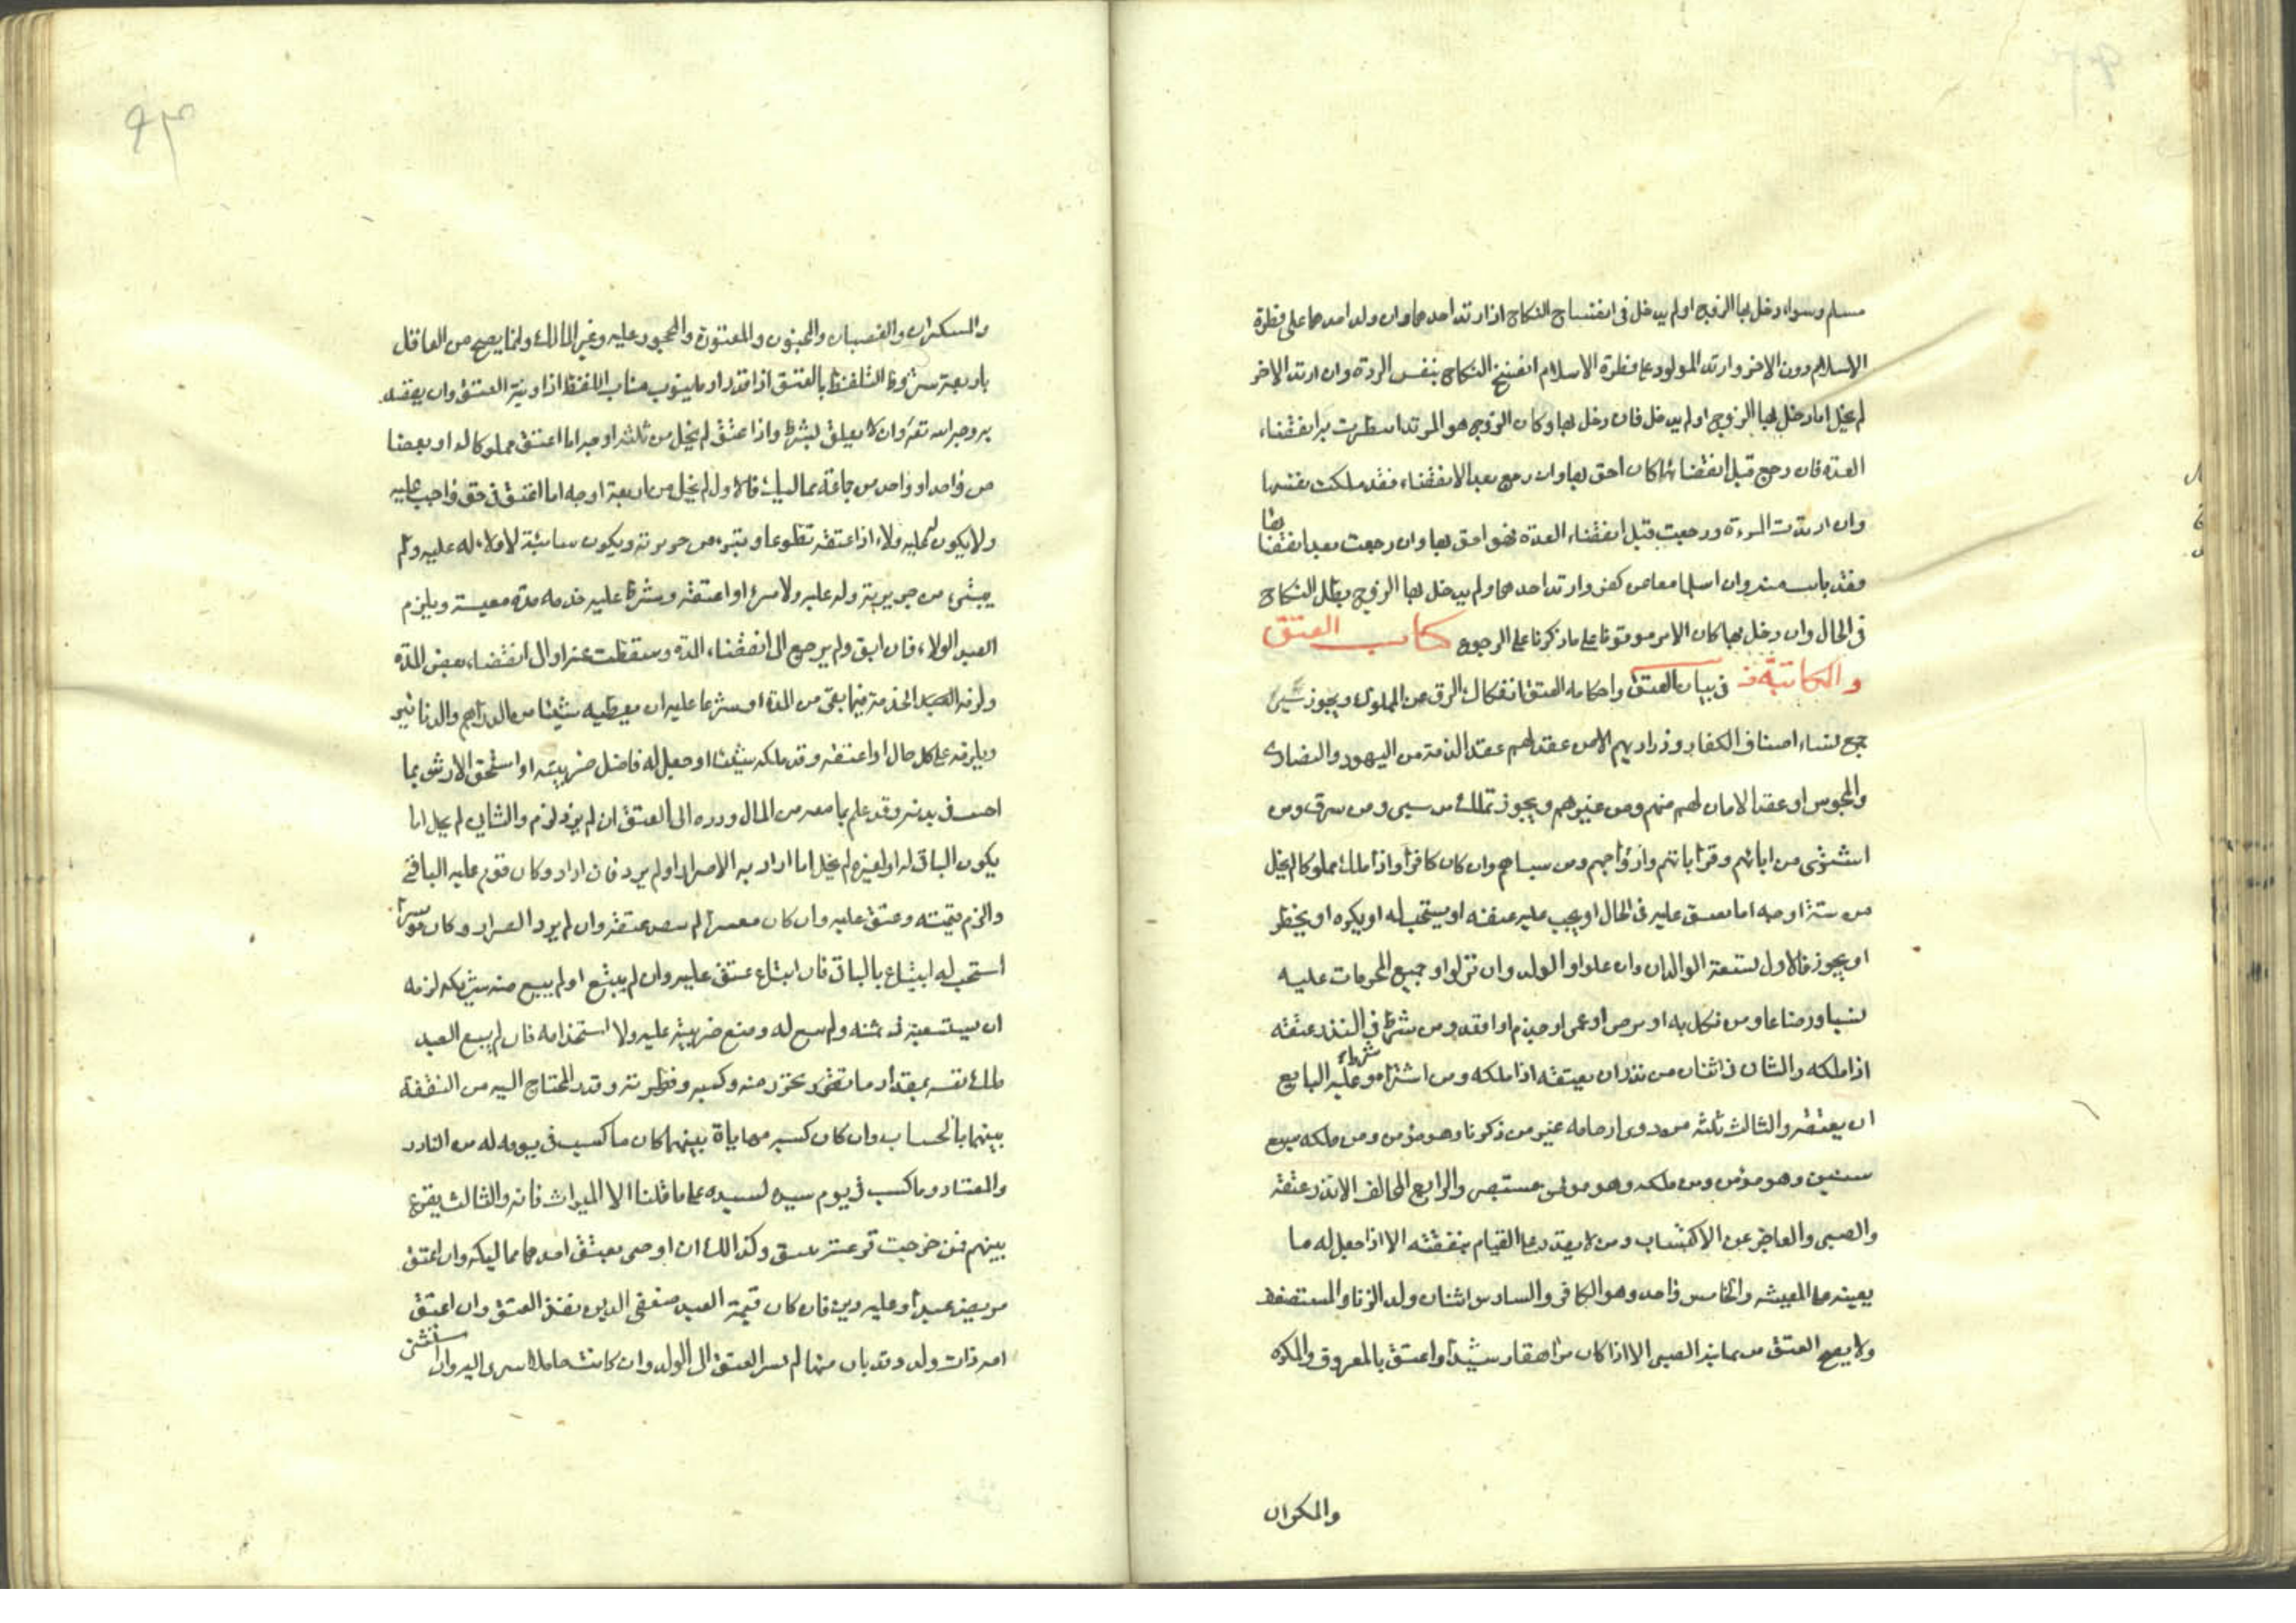 مسلم وسواء دخل بها الزوج او لم يدخل فى انفساخ النكاح اذا ارتد احدهما وان ولد احدهما على فطرة
الاسلام دون الاخر وارتد المولود على فطرة الاسلام انفسخ النكاح بنفس الردة وان ارتد الاخر
لم يخل اما دخل بها الزوج او لم يدخل فان دخل بها وكان الزوج هو المرتد انتظرت به انقضاء
العدة فان رجع قبل انقضائها كان احق بها وان رجع بعد الانقضاء فقد ملكت نفسها
وان ارتدت المرءة ورجعت قبل انقضاء العدة فهو احق بها وان رجعت بعد انقضائها
فقد بانت منه وان اسلما معا من كفر وارتد احدهما ولم يدخل بها الزوج بطل النكاح
فى الحال وان دخل بها كان الامر موقوفا على ما ذكرنا على الرجوع كتاب العتق
والمكاتبة فى بيان العتق واحكامه العتق انفكاك الرق عن المملوك ويجوز سبى
جميع نساء اصناف الكفار وذراريهم الا من عقد لهم عقد الذمة من اليهود والنصارى
والمجوس او عقد الامان لهم منهم ومن غيرهم ويجوز تملك من سبى ومن سرق ومن
اشترى من ابائهم وقراباتهم وازواجهم ومن سباهم وان كان كافرا واذا ملك مملوكا لم يخل
من ستة اوجه اما يعتق عليه فى الحال او يجب عليه عتقه او يستحب له او يكره او يحظر
او يجوز فالاول لستعة الوالدان وان علوا والولد وان نزلوا وجميع المحرمات عليه
نسبا ورضاعا ومن نكل به او برص او عمى او جذم او اقعد ومن شرط فى النذر عتقه
اذا ملكه والثانى اثنان من نذر ان يعتقه اذا ملكه ومن اشتراه وشرط عليه البايع
ان يعتقه والثالث ثلثه من ذوى ارحامه غير من ذكرنا وهو مؤمن ومن ملكه سبع
سنين وهو مؤمن ومن ملكه وهو مؤمن مستبصر والرابع المخالف الا نذر عتقه
والصبى والعاجز عن الاكتساب ومن لا يقدر على القيام بنفقته الا اذا جعل له ما
يعينه على المعيشه والخامس واحد وهو الكافر والسادس اثنان ولد الزنا والمستضعف
ولا يصح العتق من ثمانية الصبى الا اذا كان مراهقا رشيدا واعتق بالمعروف والمكره
والسكران
والسكران والغضبان والمجنون والمعتوه والمحجور عليه وغير المالك وانما يصح من العاقل
باربعة شروط التلفظ بالعتق اذا قدر او ما ينوب مناب اللفظ اذا ونية العتق وان يقصد
به وجه الله تعالى وان لا يعلق بشرط واذا عتق لم يخل من ثلثه اوجه اما اعتق مملوكا له او بعضا
من واحد او واحد من جماعة مماليك فالاول لم يخل من اربعة اوجه اما اعتق فى حق واجب عليه
ولا يكون له عليه ولاء اذا اعتقه تطوعا وتبرء من جريرته ويكون سائبة لا ولاء له عليه ولم
يتبرئ من جريرته وله عليه ولاء او اعتقه وشرط عليه خدمه مدة معينة ويلزم
العبد الولاء فان ابق ولم يرجع الى انقضاء المدة وسقطت عنه او الى انقضاء بعض المدة
ولزم العبد الخدمة فيما بقى من المدة او شرط عليه ان يعطيه شيئا من الدراهم والدنانير
ويلزمه على كل حال او اعتقه وقد ملكه شيئا او جعل له فاضل ضريبته او استحق الارش بما
اصيب فى بدنه وقد علم بما معه من المال ورده الى العتق ان لم يرد لزم والثانى لم يخل اما
يكون الباقى له او لغيره لم يخل اما اراد به الاضرار او لم يرد فان اراد وكان قوم عليه الباقى
والزم قيمته وعتق عليه وان كان معسرا لم يصح عتقه وان لم يرد الضرار وكان موسرا
استحب له ابتياع الباقى فان ابتاع عتق عليه وان لم يبتع او لم يبيع منه شريكه لزمه
ان يستسعيه فى ثمنه ولم يسع له ومنع ضريبته عليه ولا استخدامه فان لم يسع العبد
ملك نفسه بمقدار ما تحرر منه وكسبه وفطرته وقدر المحتاج اليه من النفقة
بينهما بالحساب وان كان كسبه مهاياة بينهما كان ما كسب فى يومه له من النادر
والمعتاد وما كسب فى يوم سيده لسيده على ما قلنا الا الميراث فانه والثالث يقرع
بينهم فمن خرجت قرعته عتق وكذالك ان اوصى بعتق احد مماليكه وان اعتق
مريض عبدا وعليه دين فان كان قيمة العبد ضعفى الدين نفذ العتق وان اعتق
امه ذات ولد وقد بان منها لم يسر العتق الى الولد وان كانت حاملا سرى اليه وان استثنى